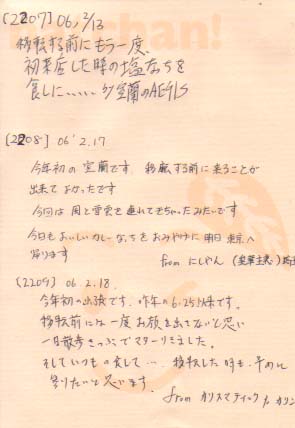 [2207] 06, 2/13
移転する前にもう一度、
初来店した時の塩なっちを
食しに、、、、、 by 室蘭のAEGIS
[2208] 06' 2.17
今年初の室蘭です 移転する前に来ることが
出来てよかったです
今回は 風と雪雲を連れてきちゃったみたいです
今日もおいしいカレーなっちをおみやげに 明日 東京へ
帰ります
from にしやん
[2209] 06. 2.18.
今年初の出張です. 昨年の6.25以来です.
移転前に一度お顔を出さないと思い
一日散歩きっぷでマターリきました.
そしていつもの食して… 移転した時も 早めに
寄りたいと思います.
from カリスマティック